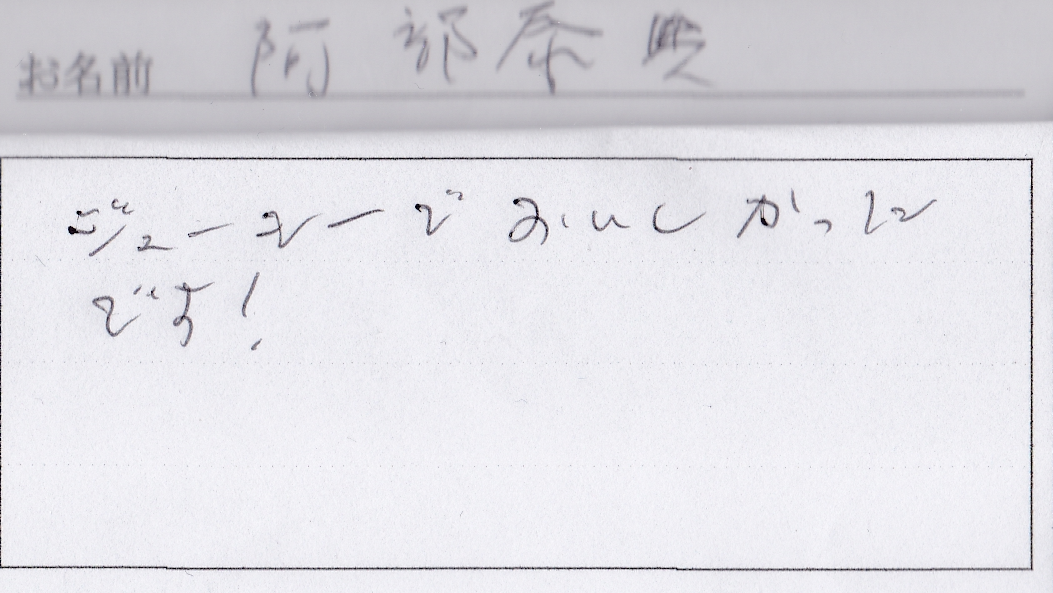 お名前 阿部泰典
ジューシーでおいしかった
です!